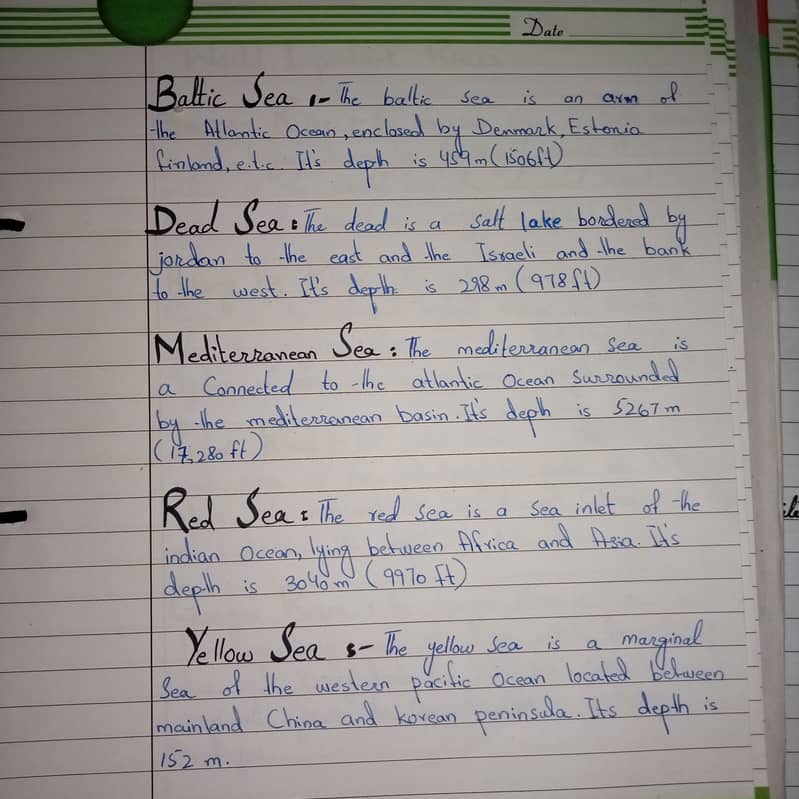 Date
Baltic Sea :- The baltic sea is an arm of
the Atlantic Ocean, enclosed by Denmark, Estonia
finland, e.t.c. It's depth is 459m (1506ft)
Dead Sea : The dead is a salt lake bordered by
jordan to the east and the Israeli and the bank
to the west. It's depth is 298m (978ft)
Mediterranean Sea : The mediterranean sea is
a Connected to the atlantic Ocean Surrounded
by the mediterranean basin. It's deph is 5267m
(17,280 ft)
Red Sea : The red sea is a Sea inlet of the
indian Ocean, lying between Africa and Asia. It's
depth is 3040m (9970 ft)
Yellow Sea :- The yellow Sea is a marginal
Sea of the western pacific Ocean located between
mainland China and korean peninsula. Its depth is
152 m.